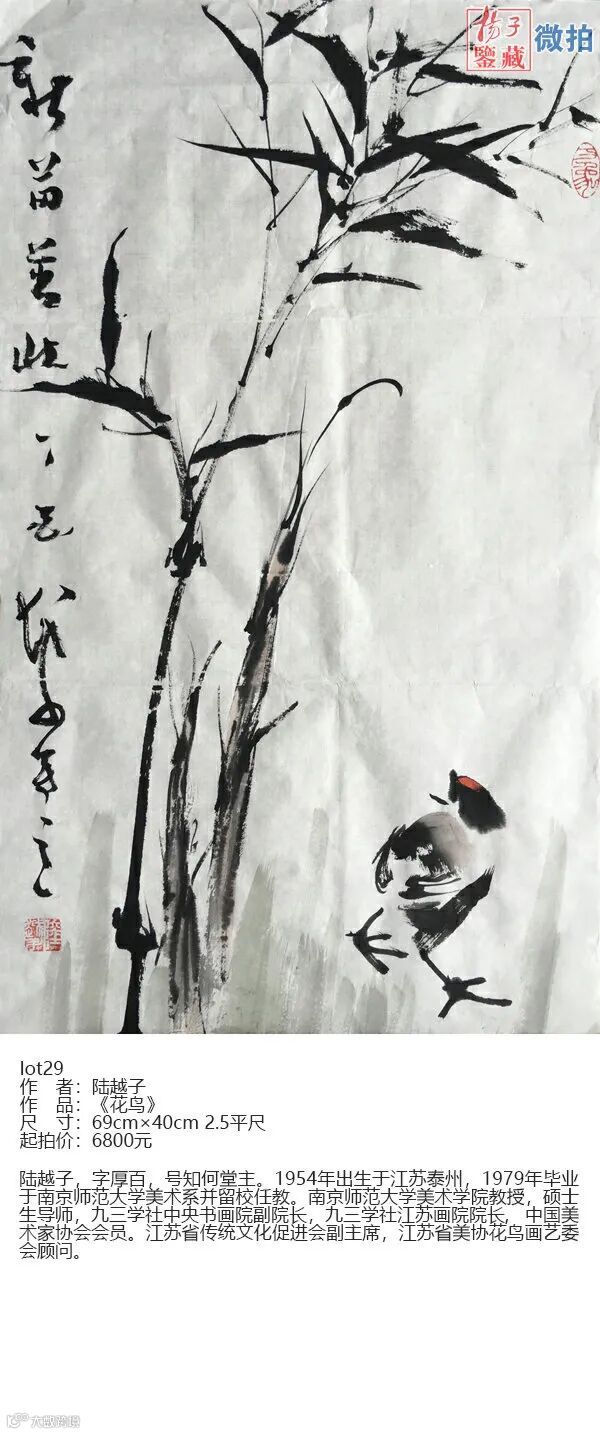 杨子
鑒藏
微拍
新苗
丁亥
越子
lot29
作　者：陆越子
作　品：《花鸟》
尺　寸：69cm×40cm 2.5平尺
起拍价：6800元
陆越子，字厚百，号知何堂主。1954年出生于江苏泰州，1979年毕业
于南京师范大学美术系并留校任教。南京师范大学美术学院教授，硕士
生导师，九三学社中央书画院副院长，九三学社江苏画院院长，中国美
术家协会会员。江苏省传统文化促进会副主席，江苏省美协花鸟画艺委
会顾问。
大数跨境